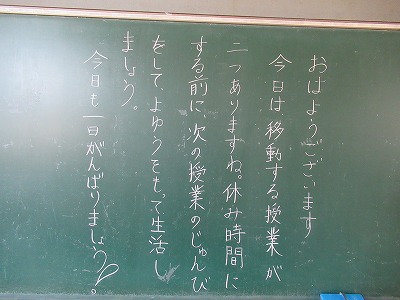 おはようございます
今日は、移動する授業が
二つありますね。休み時間に
する前に、次の授業のじゅんび
をして、よゆうをもって生活し
ましょう。
今日も一日がんばりましょう。